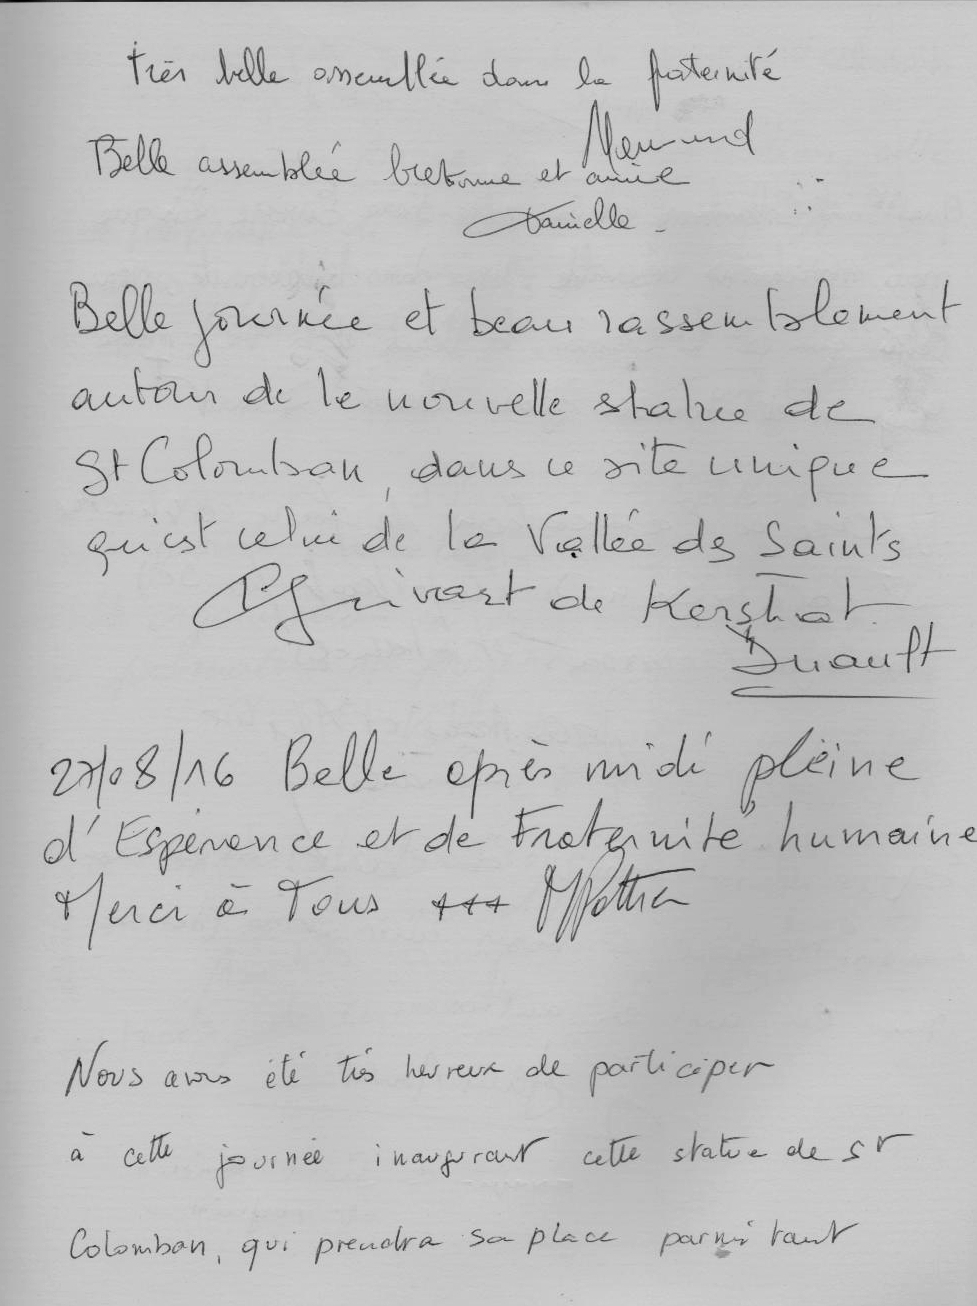 très belle assemblée dans la fraternité
Belle assemblée bretonne et amie
Danielle
Belle journée et beau rassemblement
autour de la nouvelle statue de
St Colomban, dans ce site unique
qui est celui de la Vallée des Saints
de Kersh
Duault
27/08/16 Belle après midi pleine
d'Espérance et de Fraternité humaine
Merci à Tous +++
Nous avons été très heureux de participer
à cette journée inaugurant cette statue de St
Colomban, qui prendra sa place parmi tant